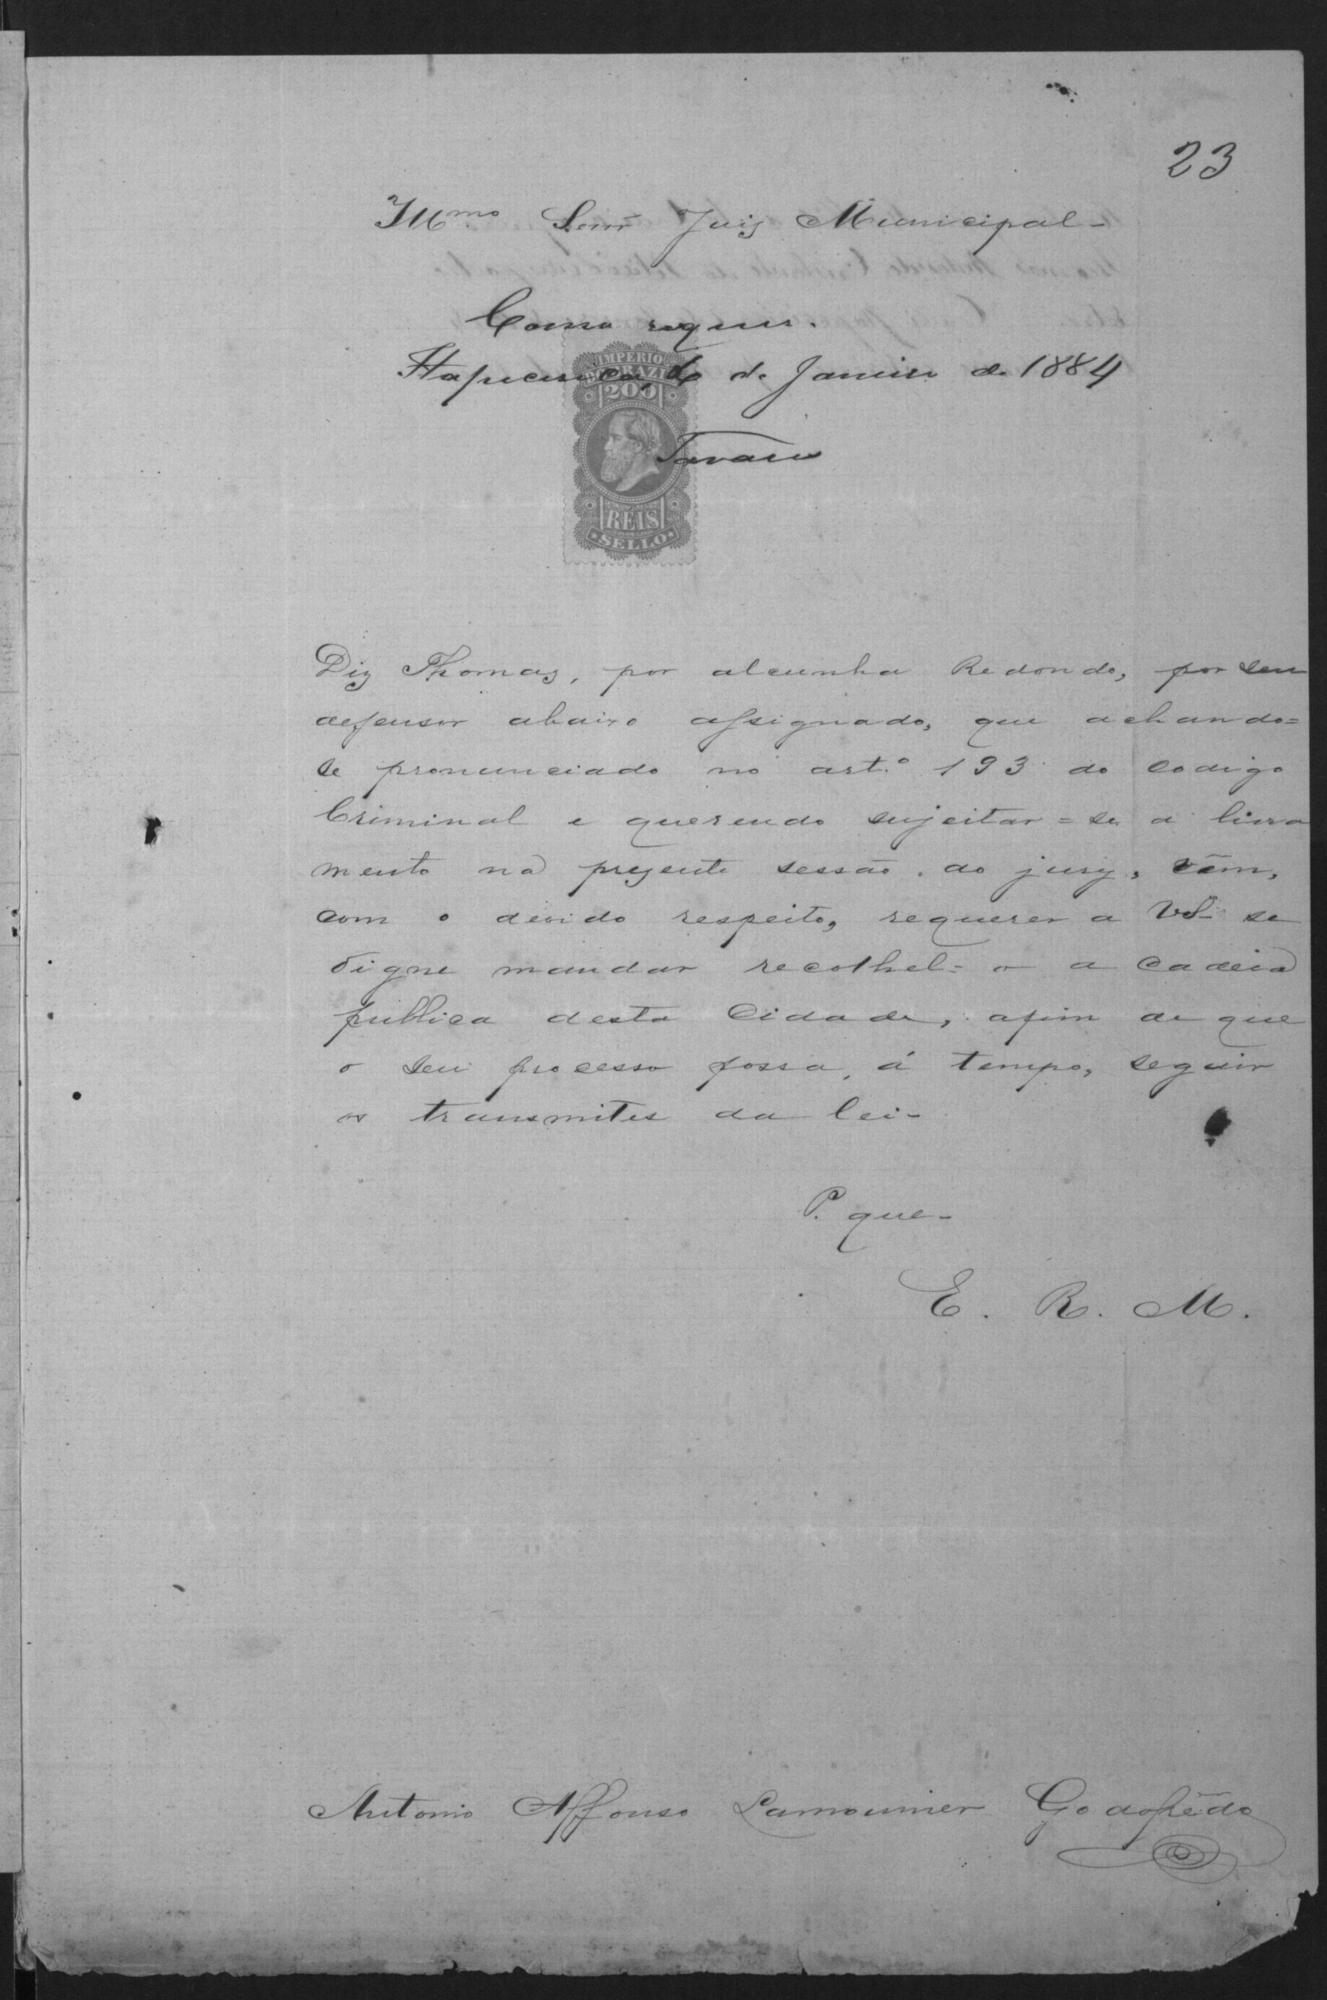 23
Illmo Senr Juiz Municipal-
Como requer.
Itapecerica, 6 de Janeiro de 1884
Tavares
IMPERIO
DO BRAZIL
200
RÉIS
SELLO
Diz Thomaz, por alcunha Redondo, por seu
defensor abaixo assignado, que achando=
se pronunciado no art.º 193 do codigo
Criminal e querendo sujeitar=se a livra
mento na prezente sessão do jury, vêm,
com o devido respeito, requerer a VS. se
digne mandar recolhel=o a cadeia
publica desta Cidade, afim de que
o seu processo possa, á tempo, seguir
os transmites da lei-
P. que-
E. R. M.
Antonio Affonso Lamounier Godofrêdo